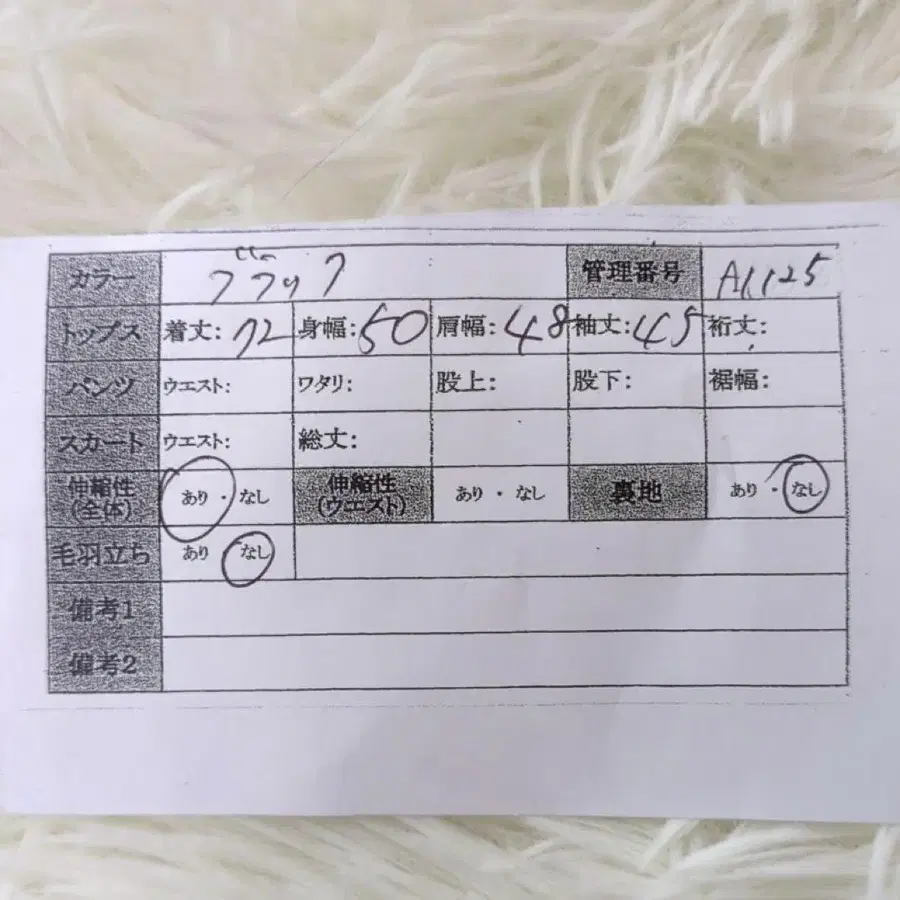 カラー ブラック 管理番号 A1125
トップス 着丈: 72 身幅: 50 肩幅: 48 袖丈: 45 裄丈:
パンツ ウエスト: ワタリ: 股上: 股下: 裾幅:
スカート ウエスト: 総丈:
伸縮性(全体) あり・なし 伸縮性(ウエスト) あり・なし 裏地 あり・なし
毛羽立ち あり なし
備考1
備考2